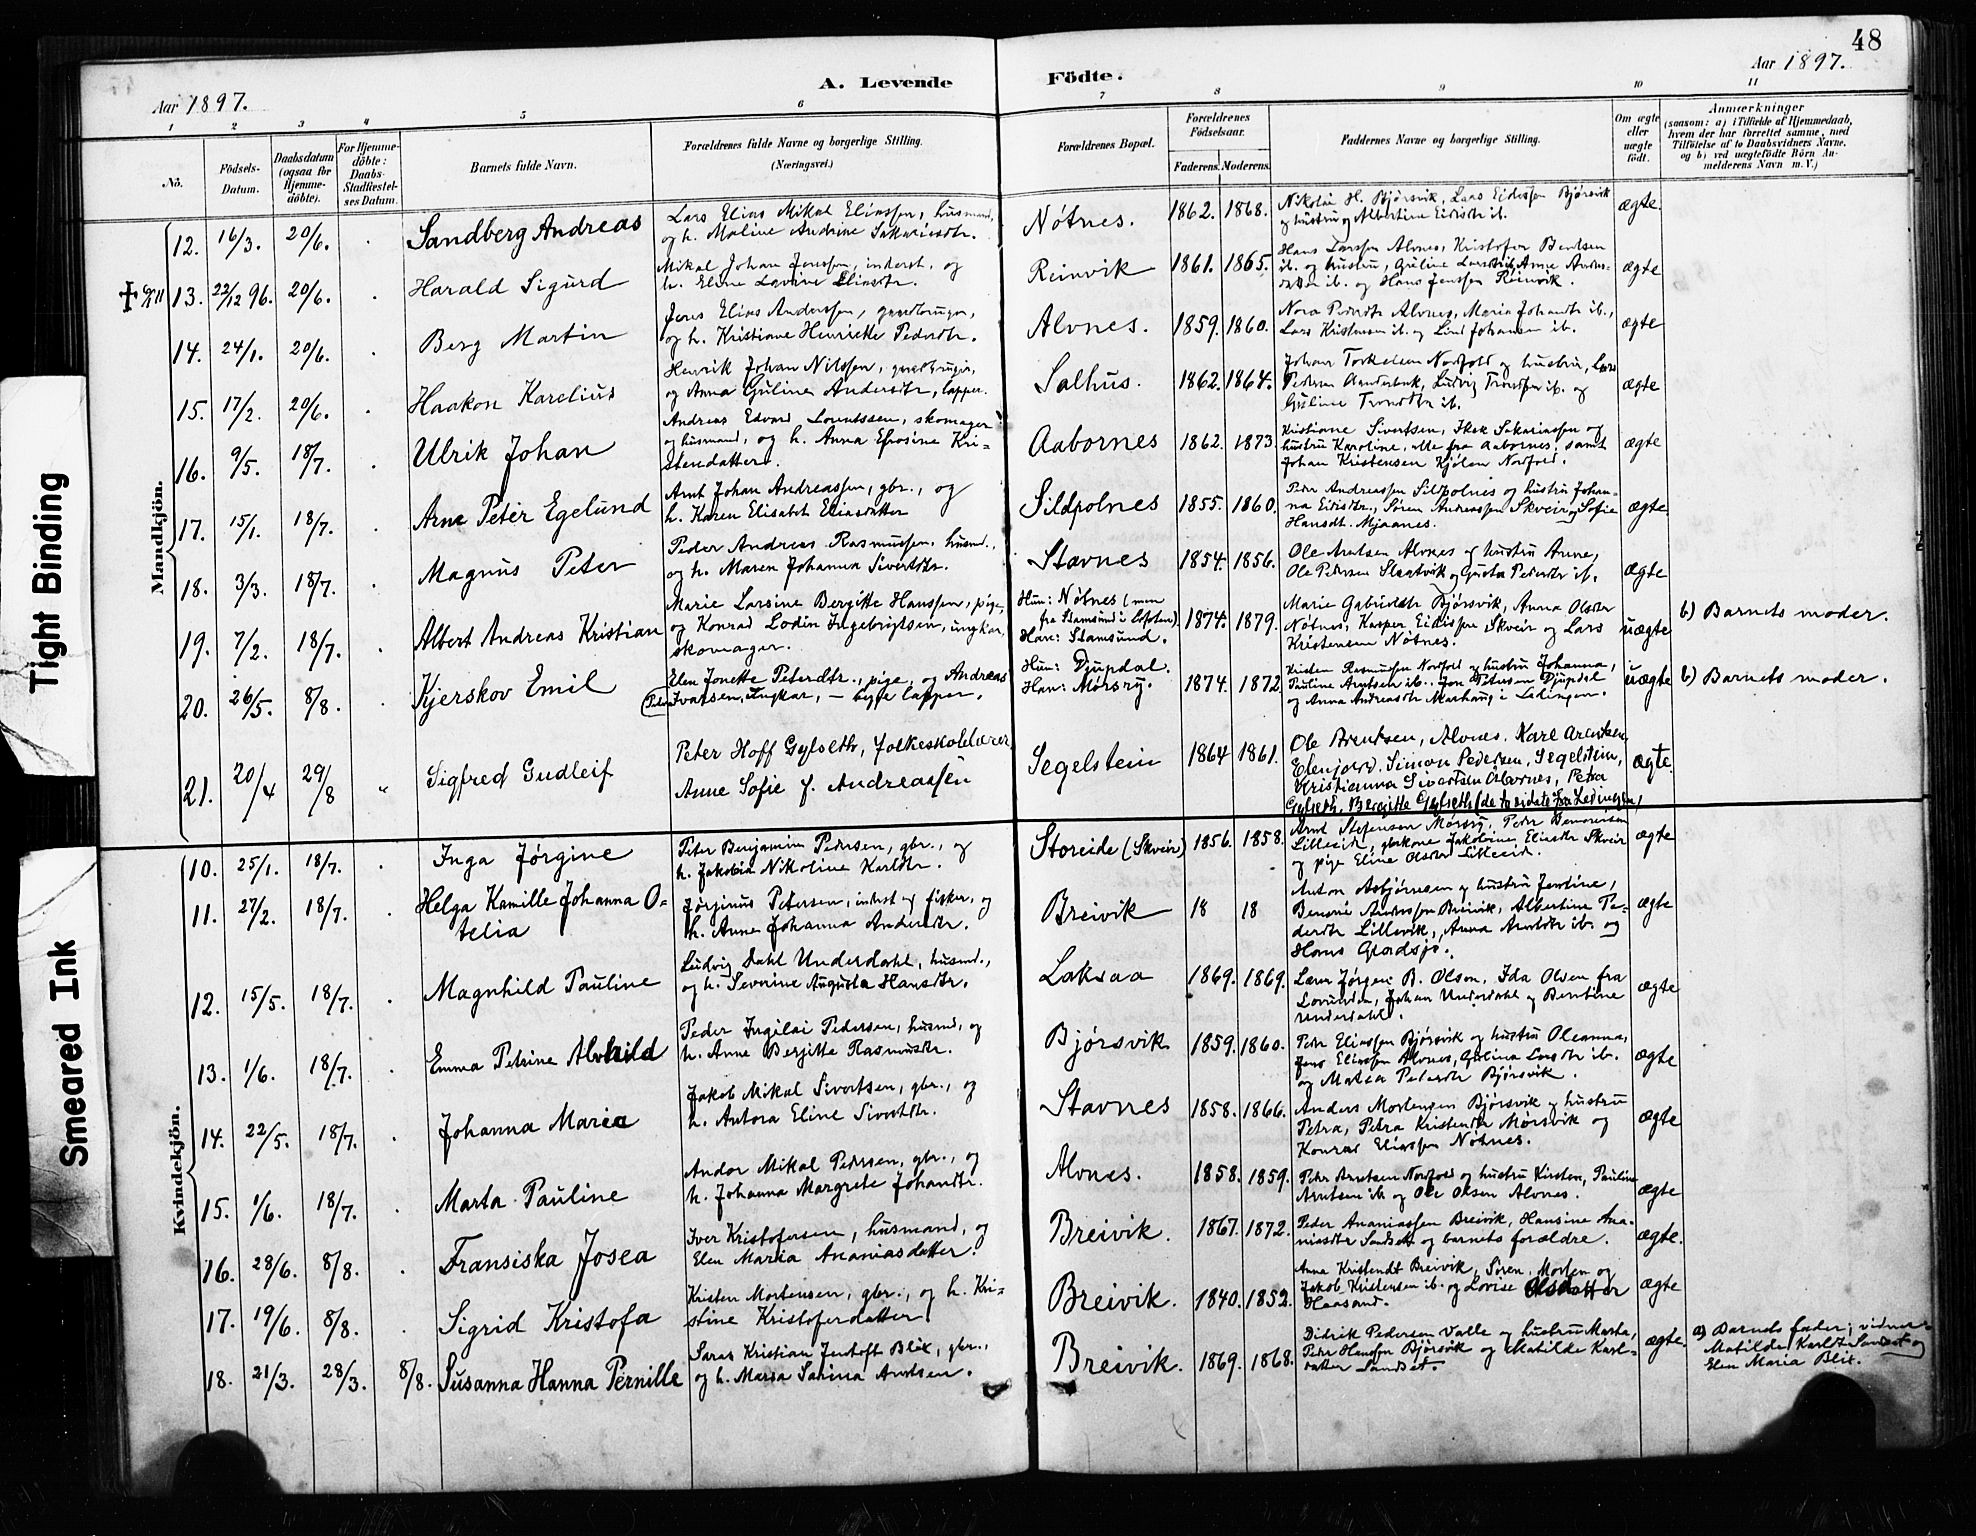 48
Aar 1897.
A. Levende Födte.
Aar 1897.
1 2 3 4 5 6 7 8 9 10 11
No.
Födsels-Datum.
Daabsdatum (ogsaa for Hjemmedöbte).
For Hjemmedöbte: Daabs-Stadfæstelses Datum.
Barnets fulde Navn.
Forældrenes fulde Navne og borgerlige Stilling. (Næringsvei.)
Forældrenes Bopæl.
Forældrenes Födselsaar.
Faderens. Moderens.
Faddernes Navne og borgerlige Stilling.
Om ægte eller uægte födt.
Anmærkninger
(saasom: a) i Tilfælde af Hjemmedaab, hvem der har forrettet samme, med Tilföielse af to Daabsvidners Navne, og b) ved uægtefödte Börn Anmelderens Navn m. V.)
Mandkjön.
12. 16/3. 20/6. Sandberg Andreas
Lars Elias Mikal Eliassen, husmand,
og h. Maline Andrine Sakariasdtr.
Nøtnes. 1862. 1868.
Nikolai H. Bjørsvik, Lars Eidissen Bjørsvik
og hustru Albertine Eidisdtr ib.
ægte.
13. 22/12 96. 20/6. Harald Sigurd
Mikal Johan Jenssen, inderst, og
h. Eline Lovine Eliasdtr.
Reinvik 1861. 1865.
Hans Larssen Alvnes, Kristofer Bentsen
ib. og hustru, Guline Larsdtr, Anne Anders-
datter ib. og Hans Jenssen Reinvik.
ægte
14. 24/1. 20/6. Berg Martin
Jens Elias Anderssen, gaardbruger,
og h. Kristiane Henrikke Pedersdtr.
Alvnes. 1859. 1860.
Nora Pedersdtr Alvnes, Maria Johansdtr ib.,
Lars Kristensen ib. og Lina Johansen ib.
ægte
15. 17/2. 20/6. Haakon Karelius
Henrik Johan Nilssen, gaardbruger,
og Anna Guline Andersdtr, lapper.
Salhus. 1862. 1864.
Johan Torkelsen Nordfold og hustru, Lars
Pedersen, Ludvig Trondsen ib. og
Guline Trondsdtr ib.
ægte
16. 9/5. 18/7. Ulrik Johan
Andreas Edvard Lorentssen, skomager
og husmand, og h. Anna Efrosine Kri-
stensdatter.
Aabornes 1862. 1873
Kristiane Sivertsen, Sakariassen og
hustru Karoline, alle fra Aabornes, samt
Johan Kristensen Kjølen Nordfold.
ægte
17. 15/1. 18/7. Arne Peter Egelund
Arnt Johan Andreassen, gbr., og
h. Karen Elisabet Eliasdatter
Sildpolnes 1855. 1860.
Peder Andreassen Sildpolnes og hustru Johan-
na Eidisdtr., Søren Andreassen Skveir og Sofie
Hansdt. Mjaanes.
ægte.
18. 3/3. 18/7. Magnus Peter
Peder Andreas Rasmussen, husmd.,
og h. Maren Johanna Sivertsdtr.
Stavnes 1854. 1856.
Ole Arntsen Alvnes og hustru Anne,
Ole Petersen Slaatvik og Gusta Pedersdtr ib.
ægte
19. 7/2. 18/7. Albert Andreas Kristian
Marie Larsine Bergitte Hanssen, pige,
og Konrad Lodin Ingebrigtsen, ungkar,
skomager.
Hun: Nøtnes (men
fra Stamsund i Lofoten).
Han: Stamsund.
1874. 1879.
Marie Gabrielsdtr Bjørsvik, Anna Olsdtr
Nøtnes, Kasper Eidissen Skveir og Lars
Kristensen Nøtnes.
uægte
b) Barnets moder.
20. 26/5. 8/8. Kjerskov Emil
Elen Jonette Petersdtr., pige, og Andreas
(Peder) Ivarsen, Ungkar, – begge lapper.
Hun: Djupdal.
Han: Mørsry.
1874. 1872
Kristen Rasmussen Nordfold og hustru Johanna,
Pauline Arntsen ib., Jon Petersen Djupdal
og Anna Andreasdtr Markaug i Lødingen.
uægte
b) Barnets moder.
21. 20/4 29/8 " Sigfred Gudleif
Peter Hoff Gylseth, folkeskolelærer,
Anne Sofie f. Andreassen
Segelstein 1864 1861.
Ole Brentsen, Alvnes. Karl Arentsen,
Elenjord. Simon Pedersen, Segelstein,
Kristianna Sivertsen Alvornes, Petra
Gylseth. Bergitte Gylseth (de to sidste fra Lødingen)
ægte.
Kvindekjön.
10. 25/1. 18/7. Inga Jørgine
Peter Benjamin Pedersen, gbr., og
h. Jakobia Nikoline Karlsdtr.
Storeide (Skveir) 1856. 1858.
Arnt Stefensen Mørsry, Peder Benonisen
Lilleeid, gbrkone Jakobine Eliasdtr Skveir
og pige Eline Olsdtr Lilleeid.
ægte
11. 27/2. 18/7. Helga Kamille Johanna O-
telia
Jørginus Petersen, inderst og fisker, og
h. Anne Johanna Andersdtr.
Breivik 18 18
Anton Asbjørnsen og hustru Jentine,
Benoni Anderssen Breivik, Albertine Pe-
dersdtr Lillevik, Anna Arntsdtr ib. og
Hans Gladsjø.
ægte
12. 15/5. 18/7. Magnhild Pauline
Ludvig Dahl Underdahl, husmd.,
og h. Severine Augusta Hansdtr.
Laksaa 1869. 1869.
Lærer Jørgen B. Olsen, Ida Olsen fra
Lovunden, Johan Underdahl og Bentine
Underdahl.
ægte
13. 1/6. 18/7. Emma Petrine Alvhild
Peder Ingilai Pedersen, husmd, og
h. Anne Bergitte Rasmusdtr.
Bjørsvik 1859. 1860.
Peder Eliassen Bjørsvik og hustru Oleanna,
Jens Eliassen Alvnes, Gulina Larsdtr ib.
og Matea Pedersdtr Bjørsvik.
ægte
14. 22/5. 18/7. Johanna Maria
Jakob Mikal Sivertsen, gbr., og
h. Antora Eline Sivertsdtr.
Stavnes 1858. 1866.
Anders Mortensen Bjørsvik og hustru
Petra, Petra Kristensdtr Mørsvik og
Konrad Eliassen Nøtnes.
ægte
15. 1/6. 18/7. Marta Pauline
Andor Mikal Pedersen, gbr., og
h. Johanna Margrete Johansdtr.
Alvnes. 1858. 1859.
Peder Arntsen Nordfold og hustru Kirsten, Pauline
Arntsen ib. og Ole Olsen Alvnes.
ægte
16. 28/6. 8/8. Fransiska Josea
Iver Kristofersen, husmand, og
Elen Maria Ananiasdatter.
Breivik. 1867. 1872.
Peder Ananiassen Breivik, Hansine Ana-
niasdtr Sandset og barnets forældre.
ægte.
17. 19/6. 8/8. Sigrid Kristofa
Kristen Mortensen, gbr., og h. Kri-
stine Kristofersdatter.
Breivik. 1840. 1852.
Anna Kristensdt Breivik, Søren, Morten og
Jakob Kristensen ib. og Lovise Olsdatter
Haasand.
ægte
18. 21/3. 28/3. 8/8. Susanna Hanna Pernille
Saras Kristian Jentoft Blix, gbr.,
og h. Maria Sarina Arntsen.
Breivik. 1869. 1868.
Didrik Pedersen Valle og hustru Marta,
Peder Hanssen Bjørsvik og Matilde Karls-
datter Sandset.
ægte.
a) Barnets fader; vidner:
Matilde Karlsdt Sandset og
Elen Maria Blix.
Tight Binding
Smeared Ink